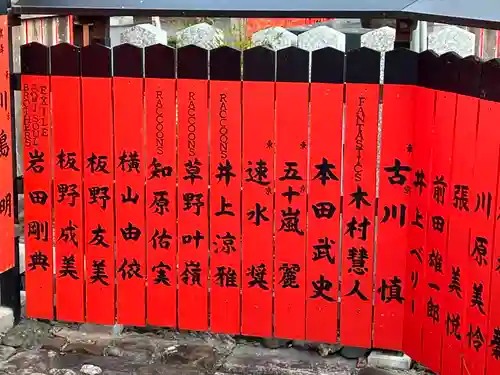 川嶋明
EXILE
BROTHERS
岩田剛典
板野成美
板野友美
横山由依
RACCOONS
知原佑実
RACCOONS
草野叶嶺
RACCOONS
井上涼雅
★速水奨
★五十嵐麗
本田武史
FANTASTICS
木村慧人
★古川慎
井上ベリ
前田雄一郎
張美悦
川原美怜